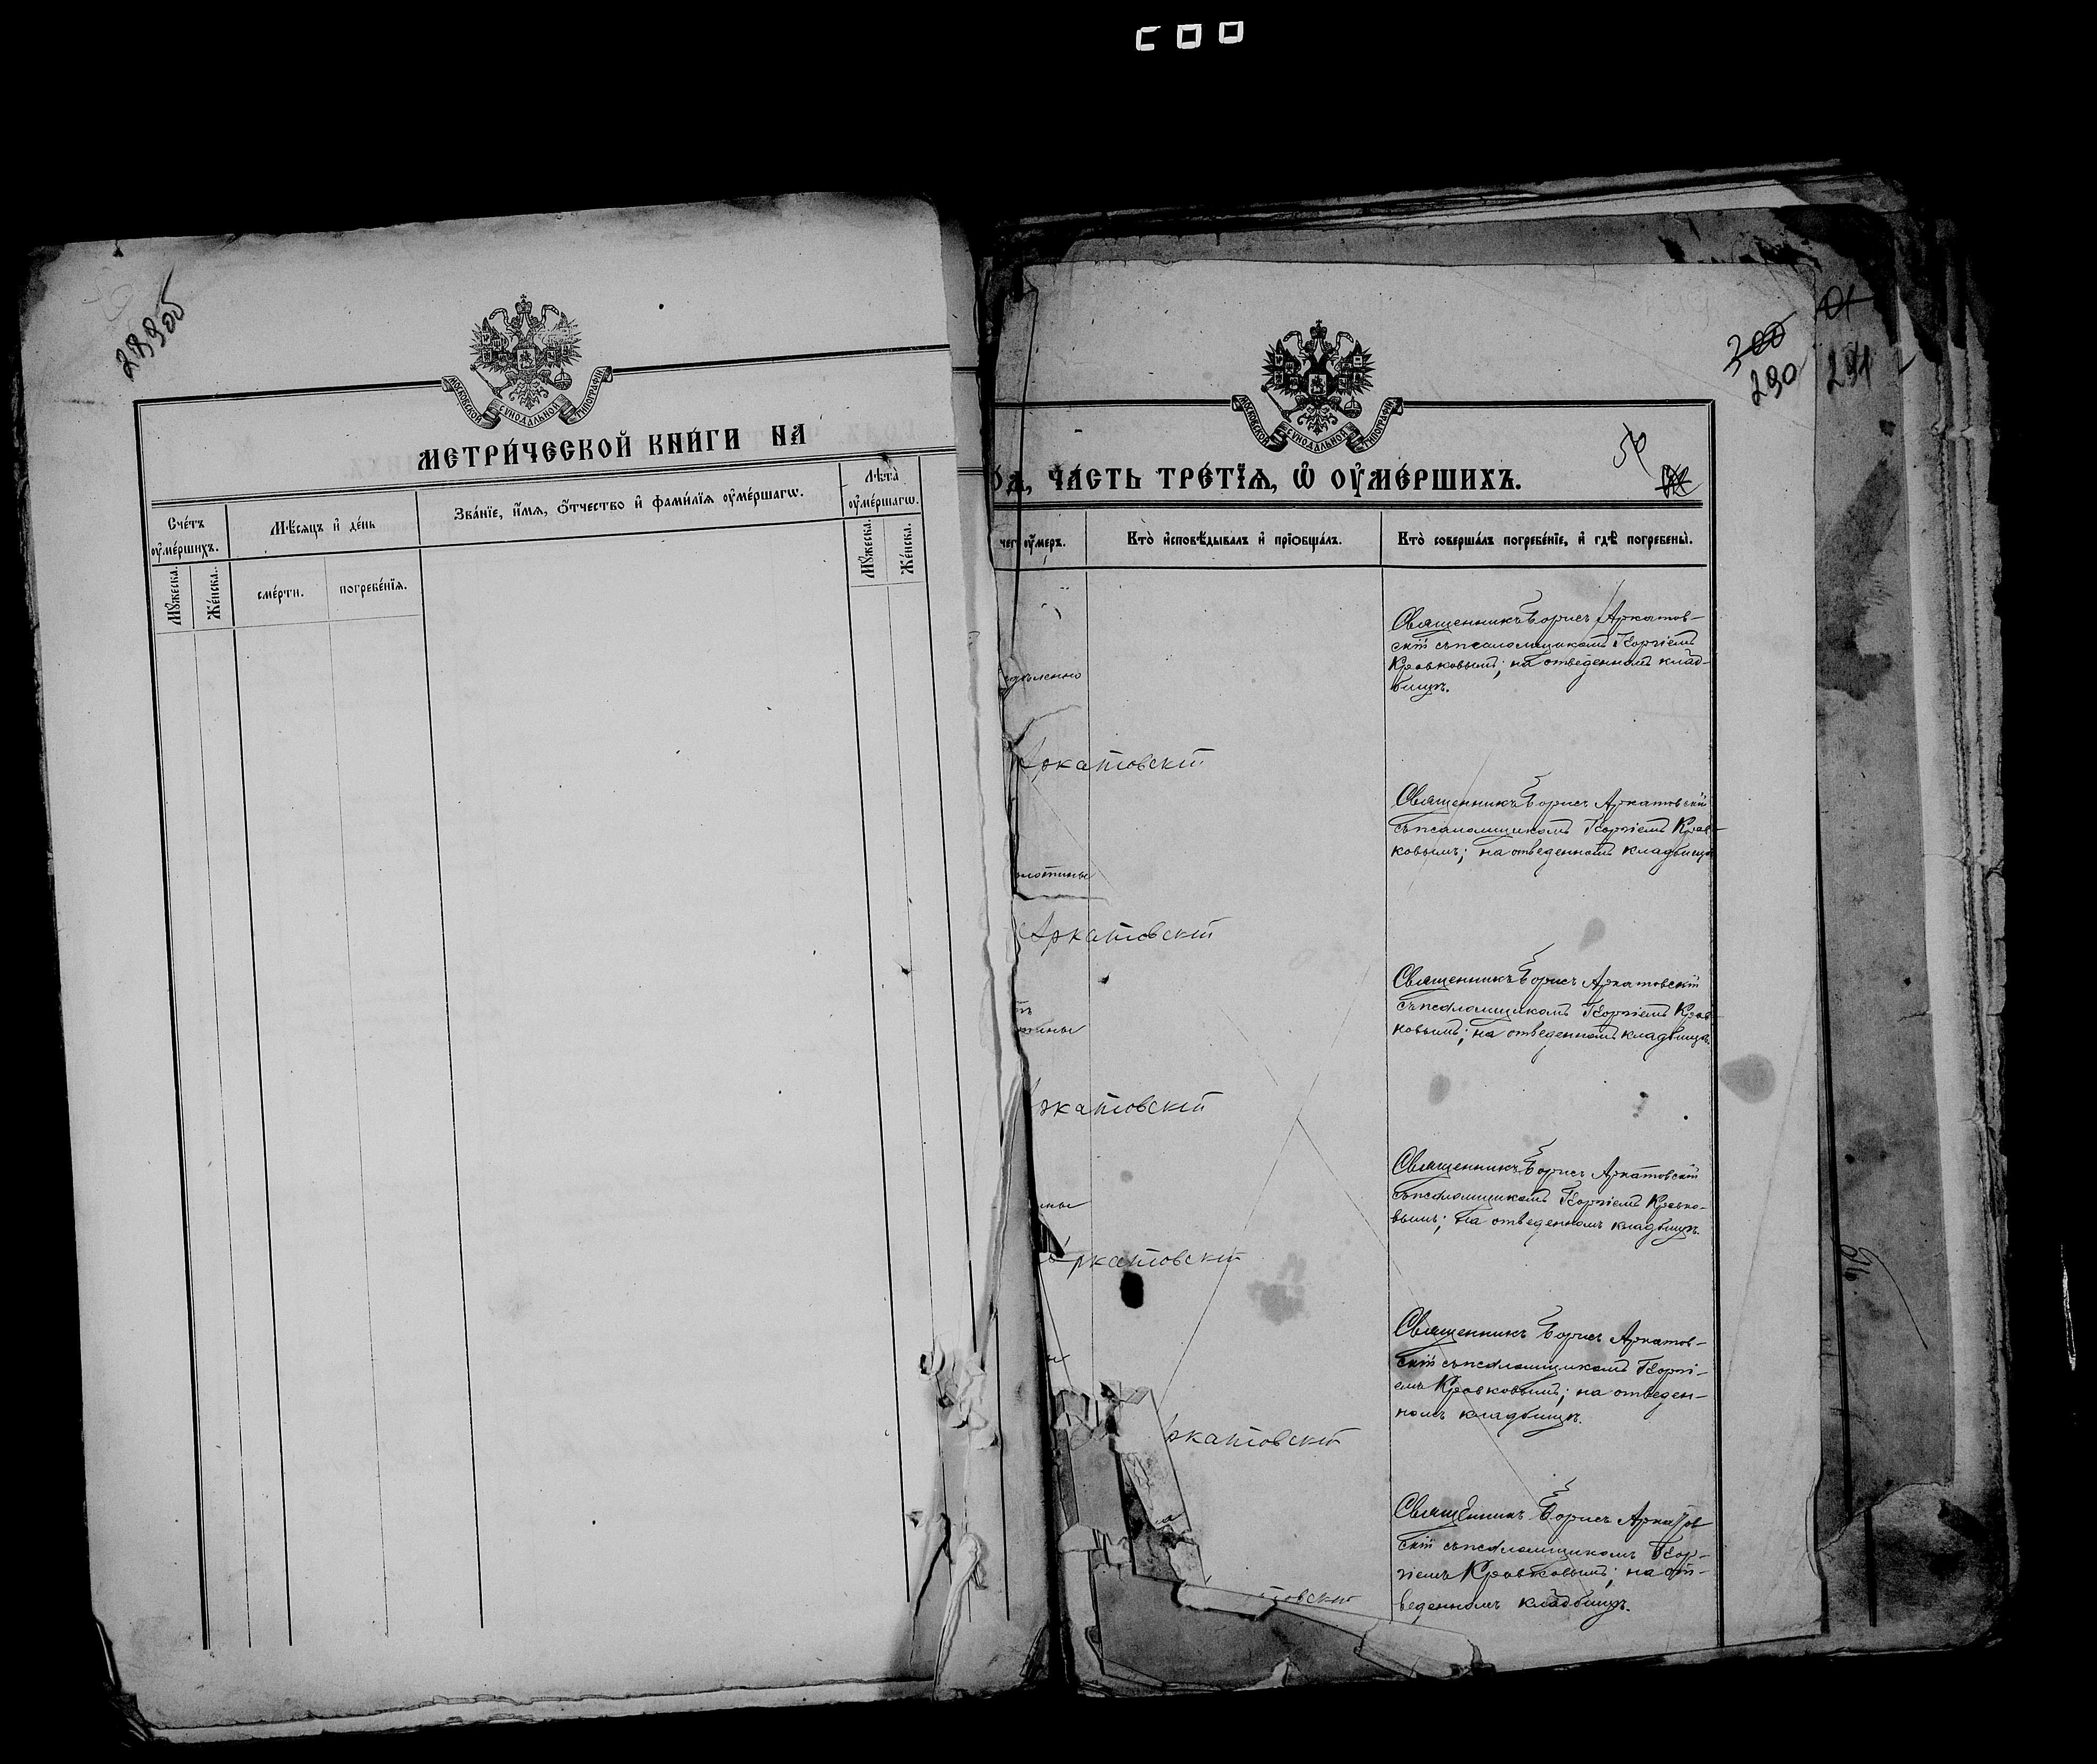 МОСКОВСКОЙ СѴНОДАЛЬНОЙ ТИПОГРАФІИ
МЕТРИ́ЧЕСКОЙ КНИ́ГИ НА
Сче́тъ оу҆ме́ршихъ.
Мѣ́сяцъ и҆ де́нь
Зва́нїе, и҆́мя, ѻ҆́тчество и҆ фами́лїя оу҆ме́ршагѡ.
Лѣ́та оу҆ме́ршагѡ.
Мꙋ́жеска.
Же́нска.
сме́рти.
погребе́нїя.
Мꙋ́жеска.
Же́нска.
200
290
291
МОСКОВСКОЙ СѴНОДАЛЬНОЙ ТИПОГРАФІИ
ЧА́СТЬ ТРЕ́ТЇѦ, Ѡ҆ ОУ҆МЕ́РШИХЪ.
чегѡ оу҆́меръ.
Кто̀ и҆сповѣ́дывалъ и҆ прїѡбща́лъ.
Кто̀ соверша́лъ погребе́нїе, и҆ гдѣ̀ погребены̀.
Священникъ Борисъ Аркатов-
скій съ псаломщикомъ Георгіемъ
Кравковымъ; на отведенномъ клад-
бищѣ.
Аркатовскій
Священникъ Борисъ Аркатовскій
съ псаломщикомъ Георгіемъ Крав-
ковымъ; на отведенномъ кладбищѣ
Аркатовскій
Священникъ Борисъ Аркатовскій
съ псаломщикомъ Георгіемъ Крав-
ковымъ; на отведенномъ кладбищѣ.
ркатовскій
Священникъ Борисъ Аркатовскій
съ псаломщикомъ Георгіемъ Кравко-
вымъ; на отведенномъ кладбищѣ.
Аркатовскій
Священникъ Борисъ Аркатов-
скій съ псаломщикомъ Георгі-
емъ Кравковымъ; на отведен-
номъ кладбищѣ.
ркатовскій
Священникъ Борисъ Аркатов
скій съ псаломщикомъ Геор-
гіемъ Кравковымъ; на от-
веденномъ кладбищѣ.
товскій